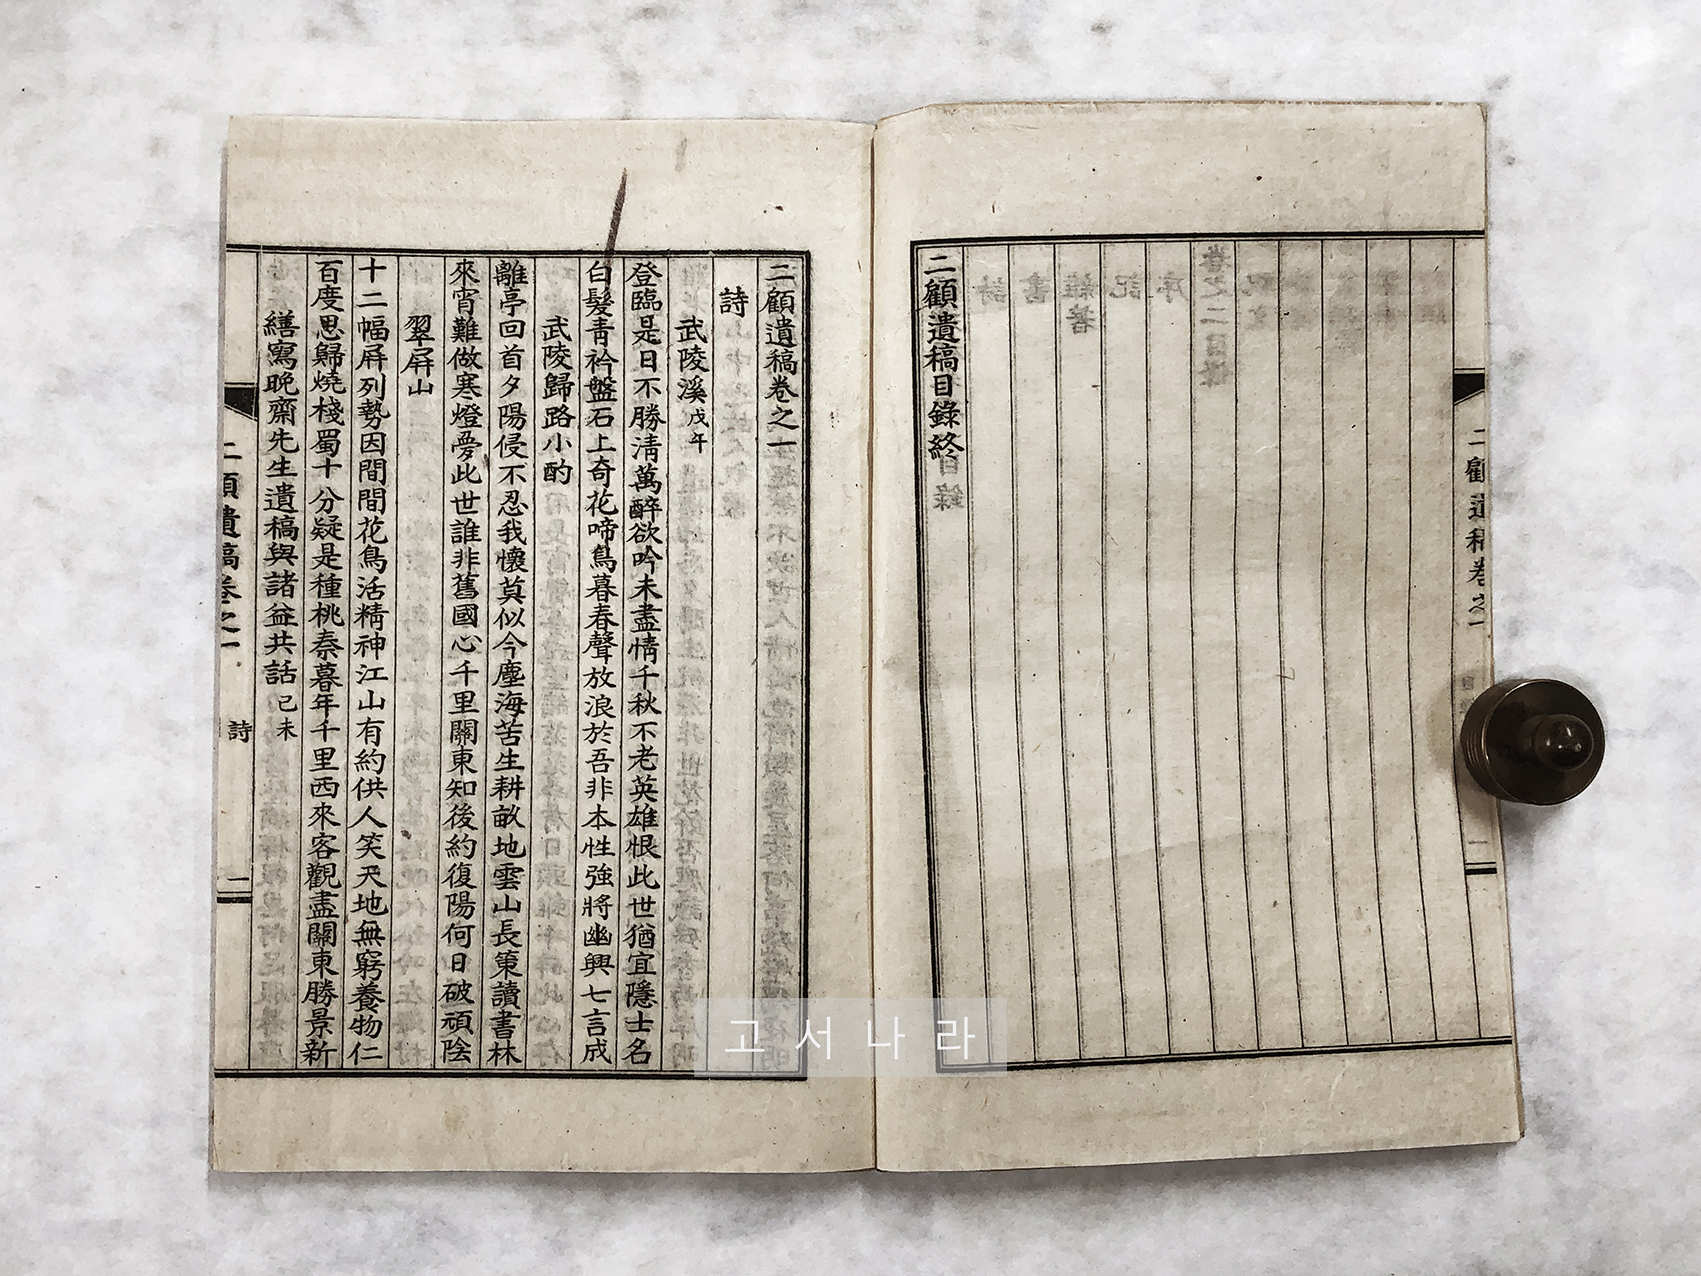 二顧遺稿目錄終
二顧遺稿卷之一
二顧遺稿卷之一
詩
武陵溪 戊午
登臨是日不勝淸萬醉欲吟未盡情千秋不老英雄恨此世猶宜隱士名
白髮靑衿盤石上奇花啼鳥暮春聲放浪於吾非本性強將幽興七言成
武陵歸路小酌
離亭回首夕陽侵不忍我懷莫似今塵海苦生耕畝地雲山長策讀書林
來宵難做寒燈夢此世誰非舊國心千里關東知後約復陽何日破頑陰
翠屛山
十二幅屛列勢因間間花鳥活精神江山有約供人笑天地無窮養物仁
百度思歸燒棧蜀十分疑是種桃秦暮年千里西來客觀盡關東勝景新
繕寫晚齋先生遺稿與諸益共話 己未
二顧遺稿卷之一 詩 一
고서나라